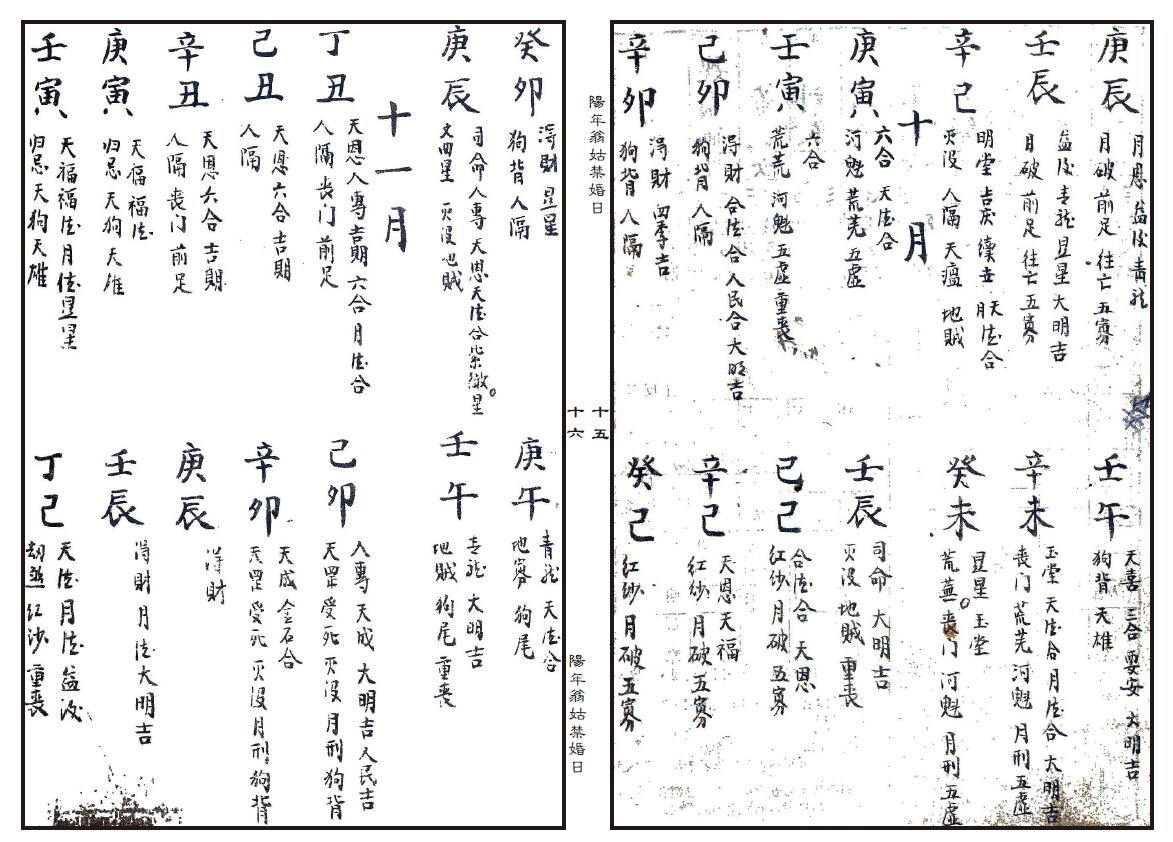 庚辰
月恩 益后 青龙
月破 前足 往亡 五寡
壬辰
益后 青龙 显星 大明吉
月破 前足 往亡 五寡
辛己
明堂 吉庆 續世 月天德合
灭没 人隔 天瘟 地贼
十月
庚寅
六合 天德合
河魁 荒芜 五虚
壬寅
六合
荒芜 河魁 五虚 重丧
己卯
得財 合德合 人民合 大明吉
狗背 人隔
辛卯
得財 四季吉
狗背 人隔
壬午
天喜 三合 要安 大明吉
狗背 天雄
辛未
玉堂 天德合 月德合 大明吉
丧门 荒芜 河魁 月刑 五虚
癸未
显星 玉堂
荒蕪 丧门 河魁 月刑 五虚
壬辰
司命 大明吉
灭没 地贼 重丧
己己
合德合 天恩
红纱 月破 五寡
辛己
天恩 天福
红纱 月破 五寡
癸己
红纱 月破 五寡
陽年翁姑禁婚日
十五
十六
陽年翁姑禁婚日
癸卯
得財 显星
狗背 人隔
庚辰
司命 人專 天恩 天德合 紫微星
文曲星 灭没 地贼
十一月
丁丑
天恩 人專 吉期 六合 月德合
人隔 丧门 前足
己丑
天恩 六合 吉期
人隔
辛丑
天恩 六合 吉期
人隔 丧门 前足
庚寅
天福 福德
归忌 天狗 天雄
壬寅
天福 福德 月德 显星
归忌 天狗 天雄
庚午
青龙 天德合
地寡 狗尾
壬午
青龙 大明吉
地贼 狗尾 重丧
己卯
人專 天成 大明吉 人民吉
天罡 受死 灭没 月刑 狗背
辛卯
天成 金石合
天罡 受死 灭没 月刑 狗背
庚辰
得財
壬辰
得財 月德 大明吉
丁己
天德 月德 益后
劫煞 红沙 重丧